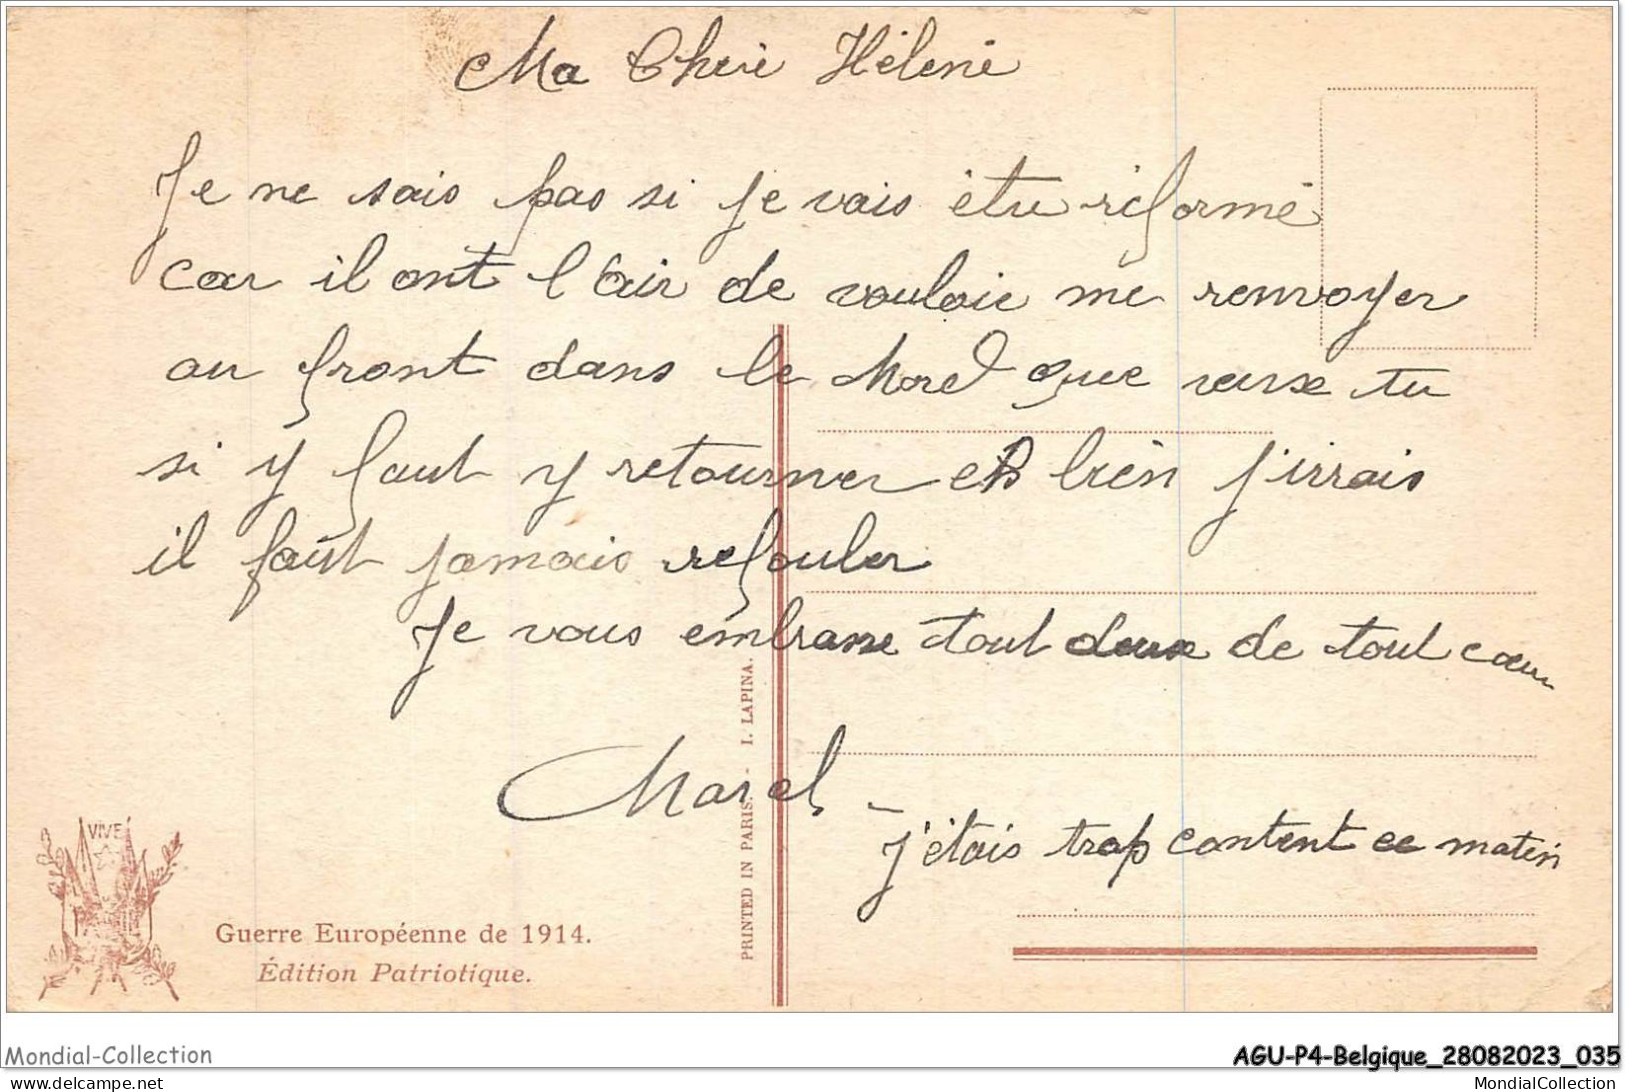 Ma Cherè Hélenè
Je ne sais pas si je vais être réformé
car il ont l'air de vouloir me renvoyer
au front dans le Nord que veux tu
si y faut y retourner eh bien j'irrais
il faut jamais refouler
Je vous embrasse tout deux de tout cœur
Marcel
j'étais trop content ce matin
VIVE
Guerre Européenne de 1914.
Édition Patriotique.
PRINTED IN PARIS. - I. LAPINA.
Mondial-Collection
AGU-P4-Belgique_28082023_035
www.delcampe.net
MondialCollection